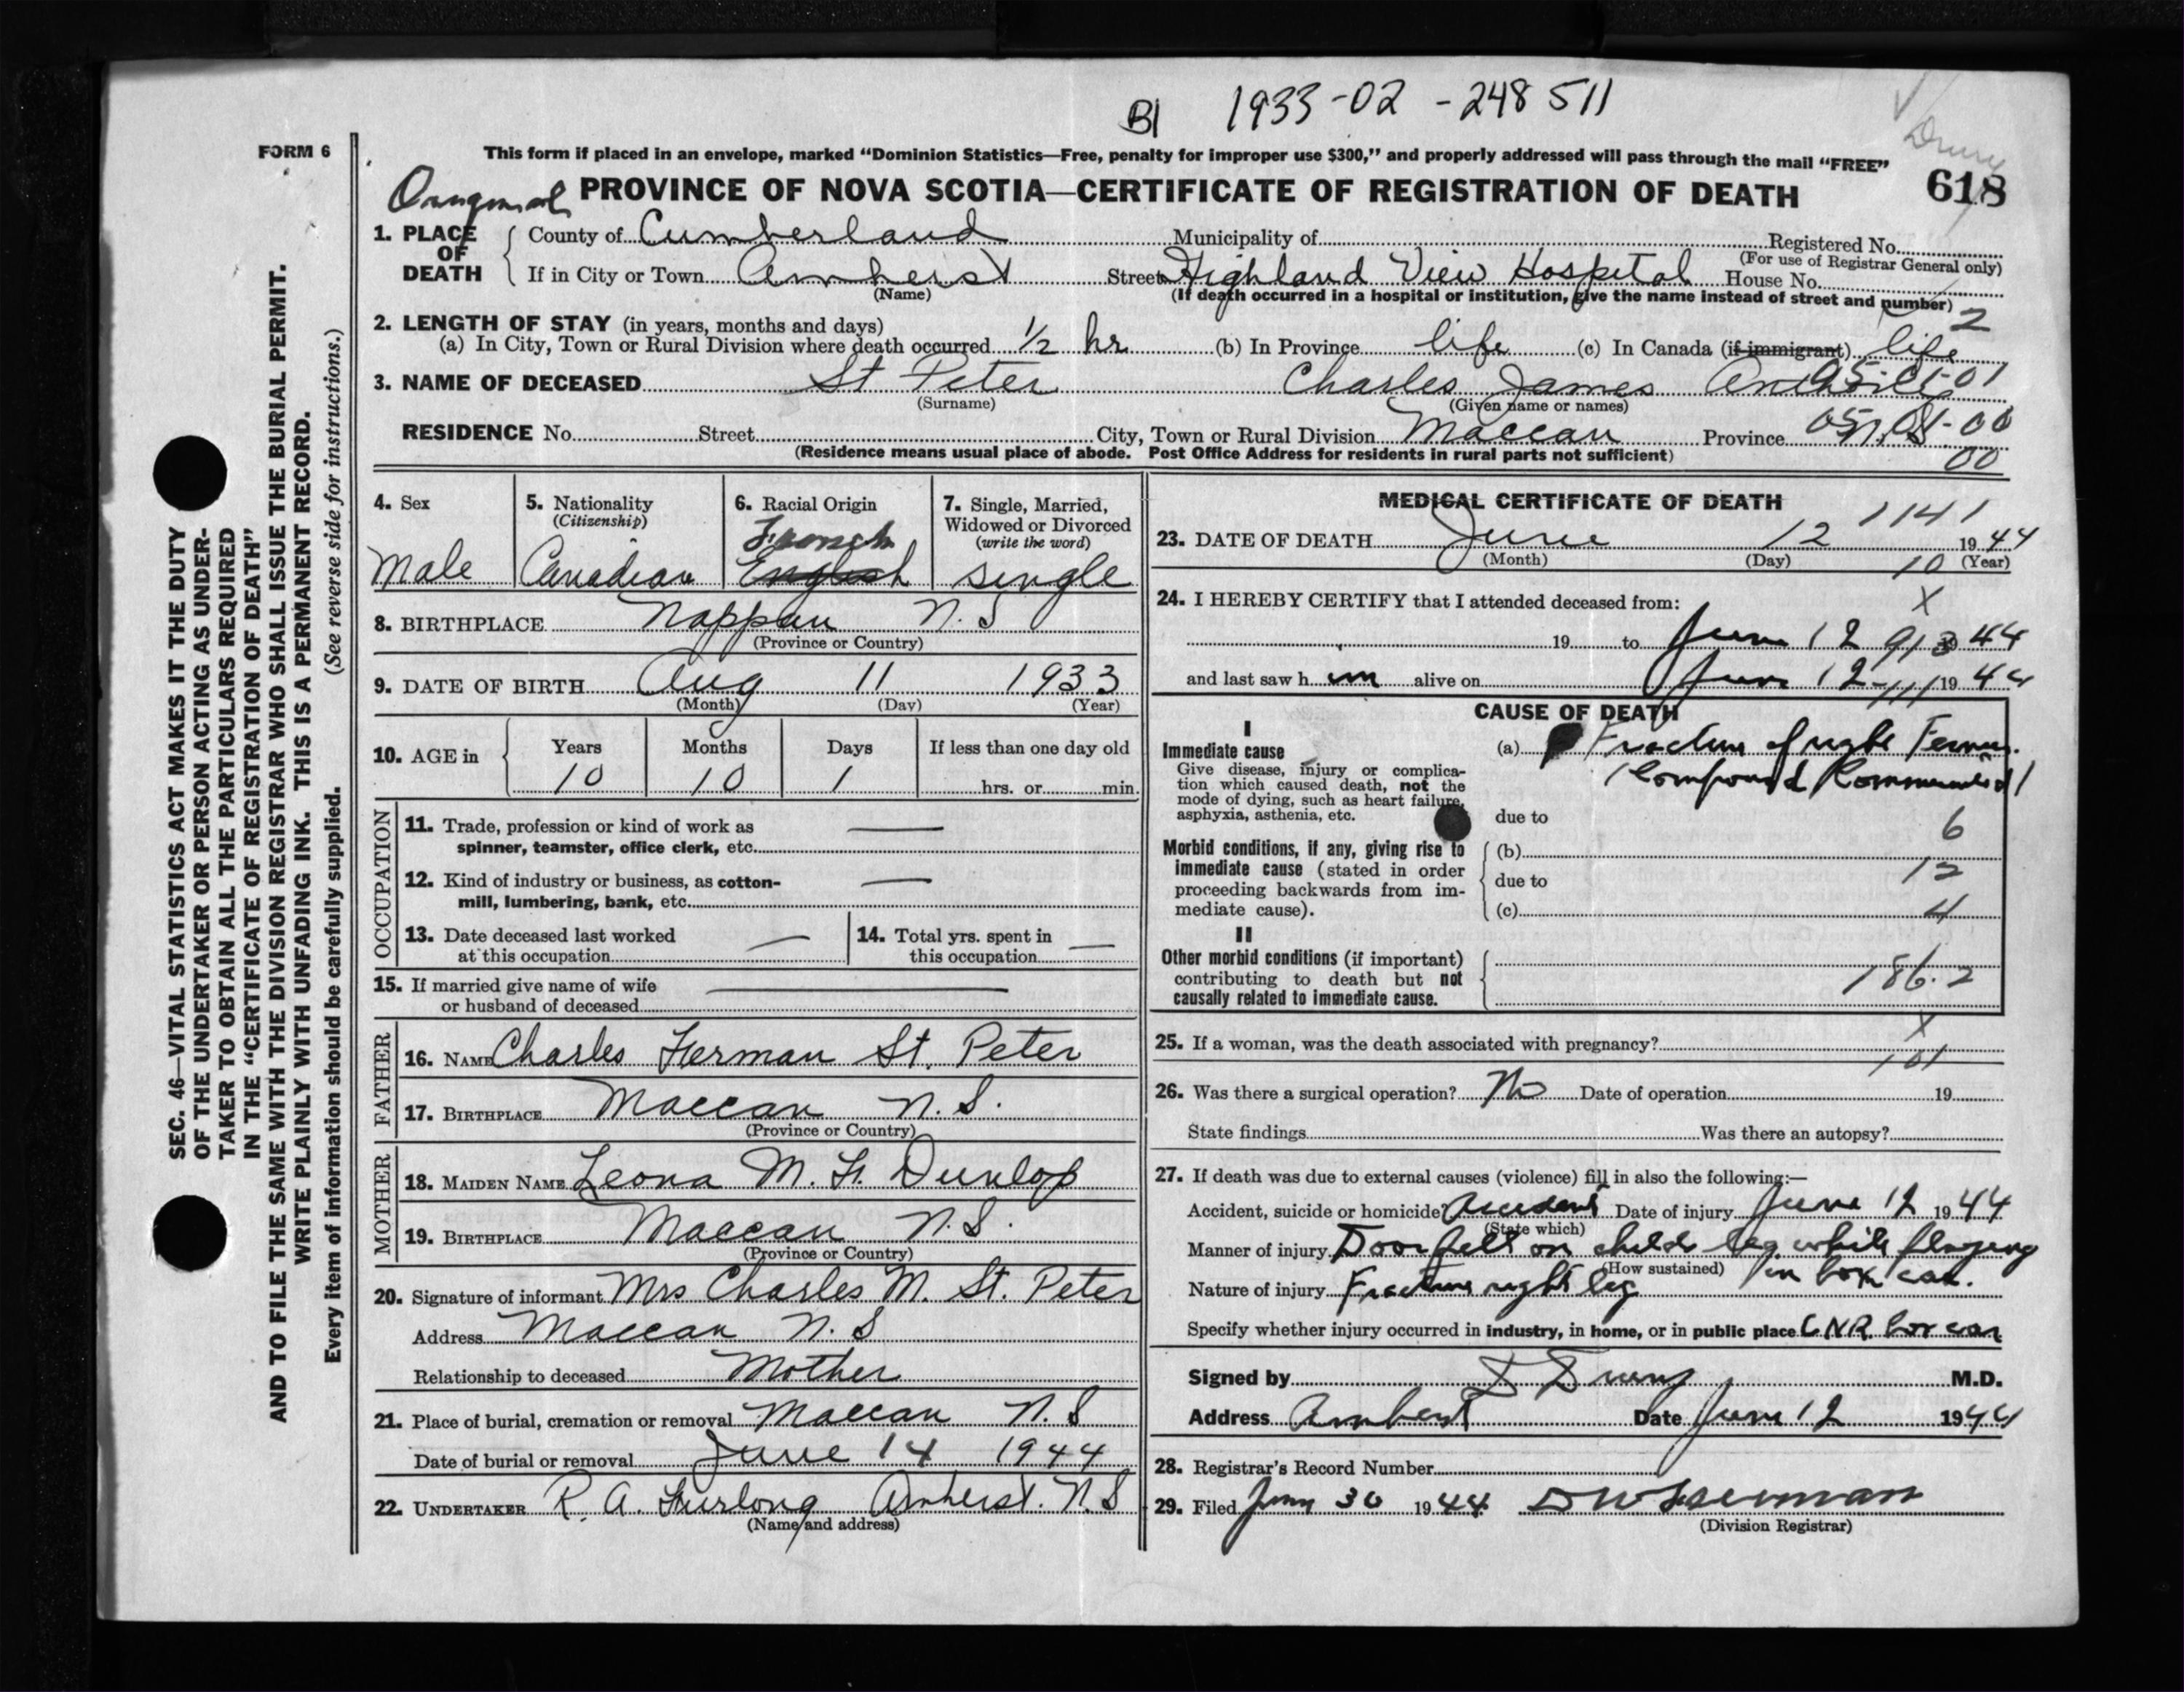 B1 1933-02-248511
FORM 6
This form if placed in an envelope, marked “Dominion Statistics—Free, penalty for improper use $300,” and properly addressed will pass through the mail “FREE”
Drury
Original PROVINCE OF NOVA SCOTIA—CERTIFICATE OF REGISTRATION OF DEATH 618
SEC. 46—VITAL STATISTICS ACT MAKES IT THE DUTY
OF THE UNDERTAKER OR PERSON ACTING AS UNDER-
TAKER TO OBTAIN ALL THE PARTICULARS REQUIRED
IN THE “CERTIFICATE OF REGISTRATION OF DEATH”
AND TO FILE THE SAME WITH THE DIVISION REGISTRAR WHO SHALL ISSUE THE BURIAL PERMIT.
WRITE PLAINLY WITH UNFADING INK. THIS IS A PERMANENT RECORD.
Every item of information should be carefully supplied. (See reverse side for instructions.)
1. PLACE OF DEATH
County of Cumberland Municipality of Registered No.
(For use of Registrar General only)
If in City or Town Amherst Street Highland View Hospital House No.
(Name) (If death occurred in a hospital or institution, give the name instead of street and number)
2
2. LENGTH OF STAY (in years, months and days)
(a) In City, Town or Rural Division where death occurred 1/2 hr (b) In Province life (c) In Canada (if immigrant) life
3. NAME OF DECEASED St Peter Charles James
(Surname) (Given name or names)
RESIDENCE No. Street City, Town or Rural Division Maccan Province N.S.
(Residence means usual place of abode. Post Office Address for residents in rural parts not sufficient) 00
4. Sex Male
5. Nationality (Citizenship) Canadian
6. Racial Origin French English
7. Single, Married, Widowed or Divorced (write the word) single
8. BIRTHPLACE Nappan N.S
(Province or Country)
9. DATE OF BIRTH Aug 11 1933
(Month) (Day) (Year)
10. AGE in Years Months Days If less than one day old
10 10 1 hrs. or min.
OCCUPATION
11. Trade, profession or kind of work as —
spinner, teamster, office clerk, etc.
12. Kind of industry or business, as cotton- —
mill, lumbering, bank, etc.
13. Date deceased last worked at this occupation —
14. Total yrs. spent in this occupation —
15. If married give name of wife —
or husband of deceased
FATHER
16. NAME Charles Herman St. Peter
17. BIRTHPLACE Maccan N.S.
(Province or Country)
MOTHER
18. MAIDEN NAME Leona M. H. Dunlop
19. BIRTHPLACE Maccan N.S.
(Province or Country)
20. Signature of informant Mrs Charles M. St. Peter
Address Maccan N.S
Relationship to deceased Mother
21. Place of burial, cremation or removal Maccan N.S
Date of burial or removal June 14 1944
22. UNDERTAKER R. A. Furlong Amherst. N.S
(Name and address)
MEDICAL CERTIFICATE OF DEATH
1141
23. DATE OF DEATH June 12 1944
(Month) (Day) (Year)
10
X
24. I HEREBY CERTIFY that I attended deceased from:
19 to June 12 1944
913
and last saw h im alive on June 12 1944
CAUSE OF DEATH
I
Immediate cause (a) Fracture of right Femur.
Give disease, injury or complica-
tion which caused death, not the
mode of dying, such as heart failure,
asphyxia, asthenia, etc.
(Compound Comminuted)
due to 6
Morbid conditions, if any, giving rise to (b)
immediate cause (stated in order due to 12
proceeding backwards from im-
mediate cause). (c) 4
II
Other morbid conditions (if important)
contributing to death but not 186.2
causally related to immediate cause.
X
25. If a woman, was the death associated with pregnancy?
101
26. Was there a surgical operation? No Date of operation 19
State findings Was there an autopsy?
27. If death was due to external causes (violence) fill in also the following:—
Accident, suicide or homicide? Accident Date of injury June 12 1944
(State which)
Manner of injury Door fell on childs leg while playing
(How sustained) in box car.
Nature of injury Fracture right leg
Specify whether injury occurred in industry, in home, or in public place CNR box car
Signed by D Drury M.D.
Address Amherst Date June 12 1944
28. Registrar's Record Number
29. Filed June 30 1944
(Division Registrar)